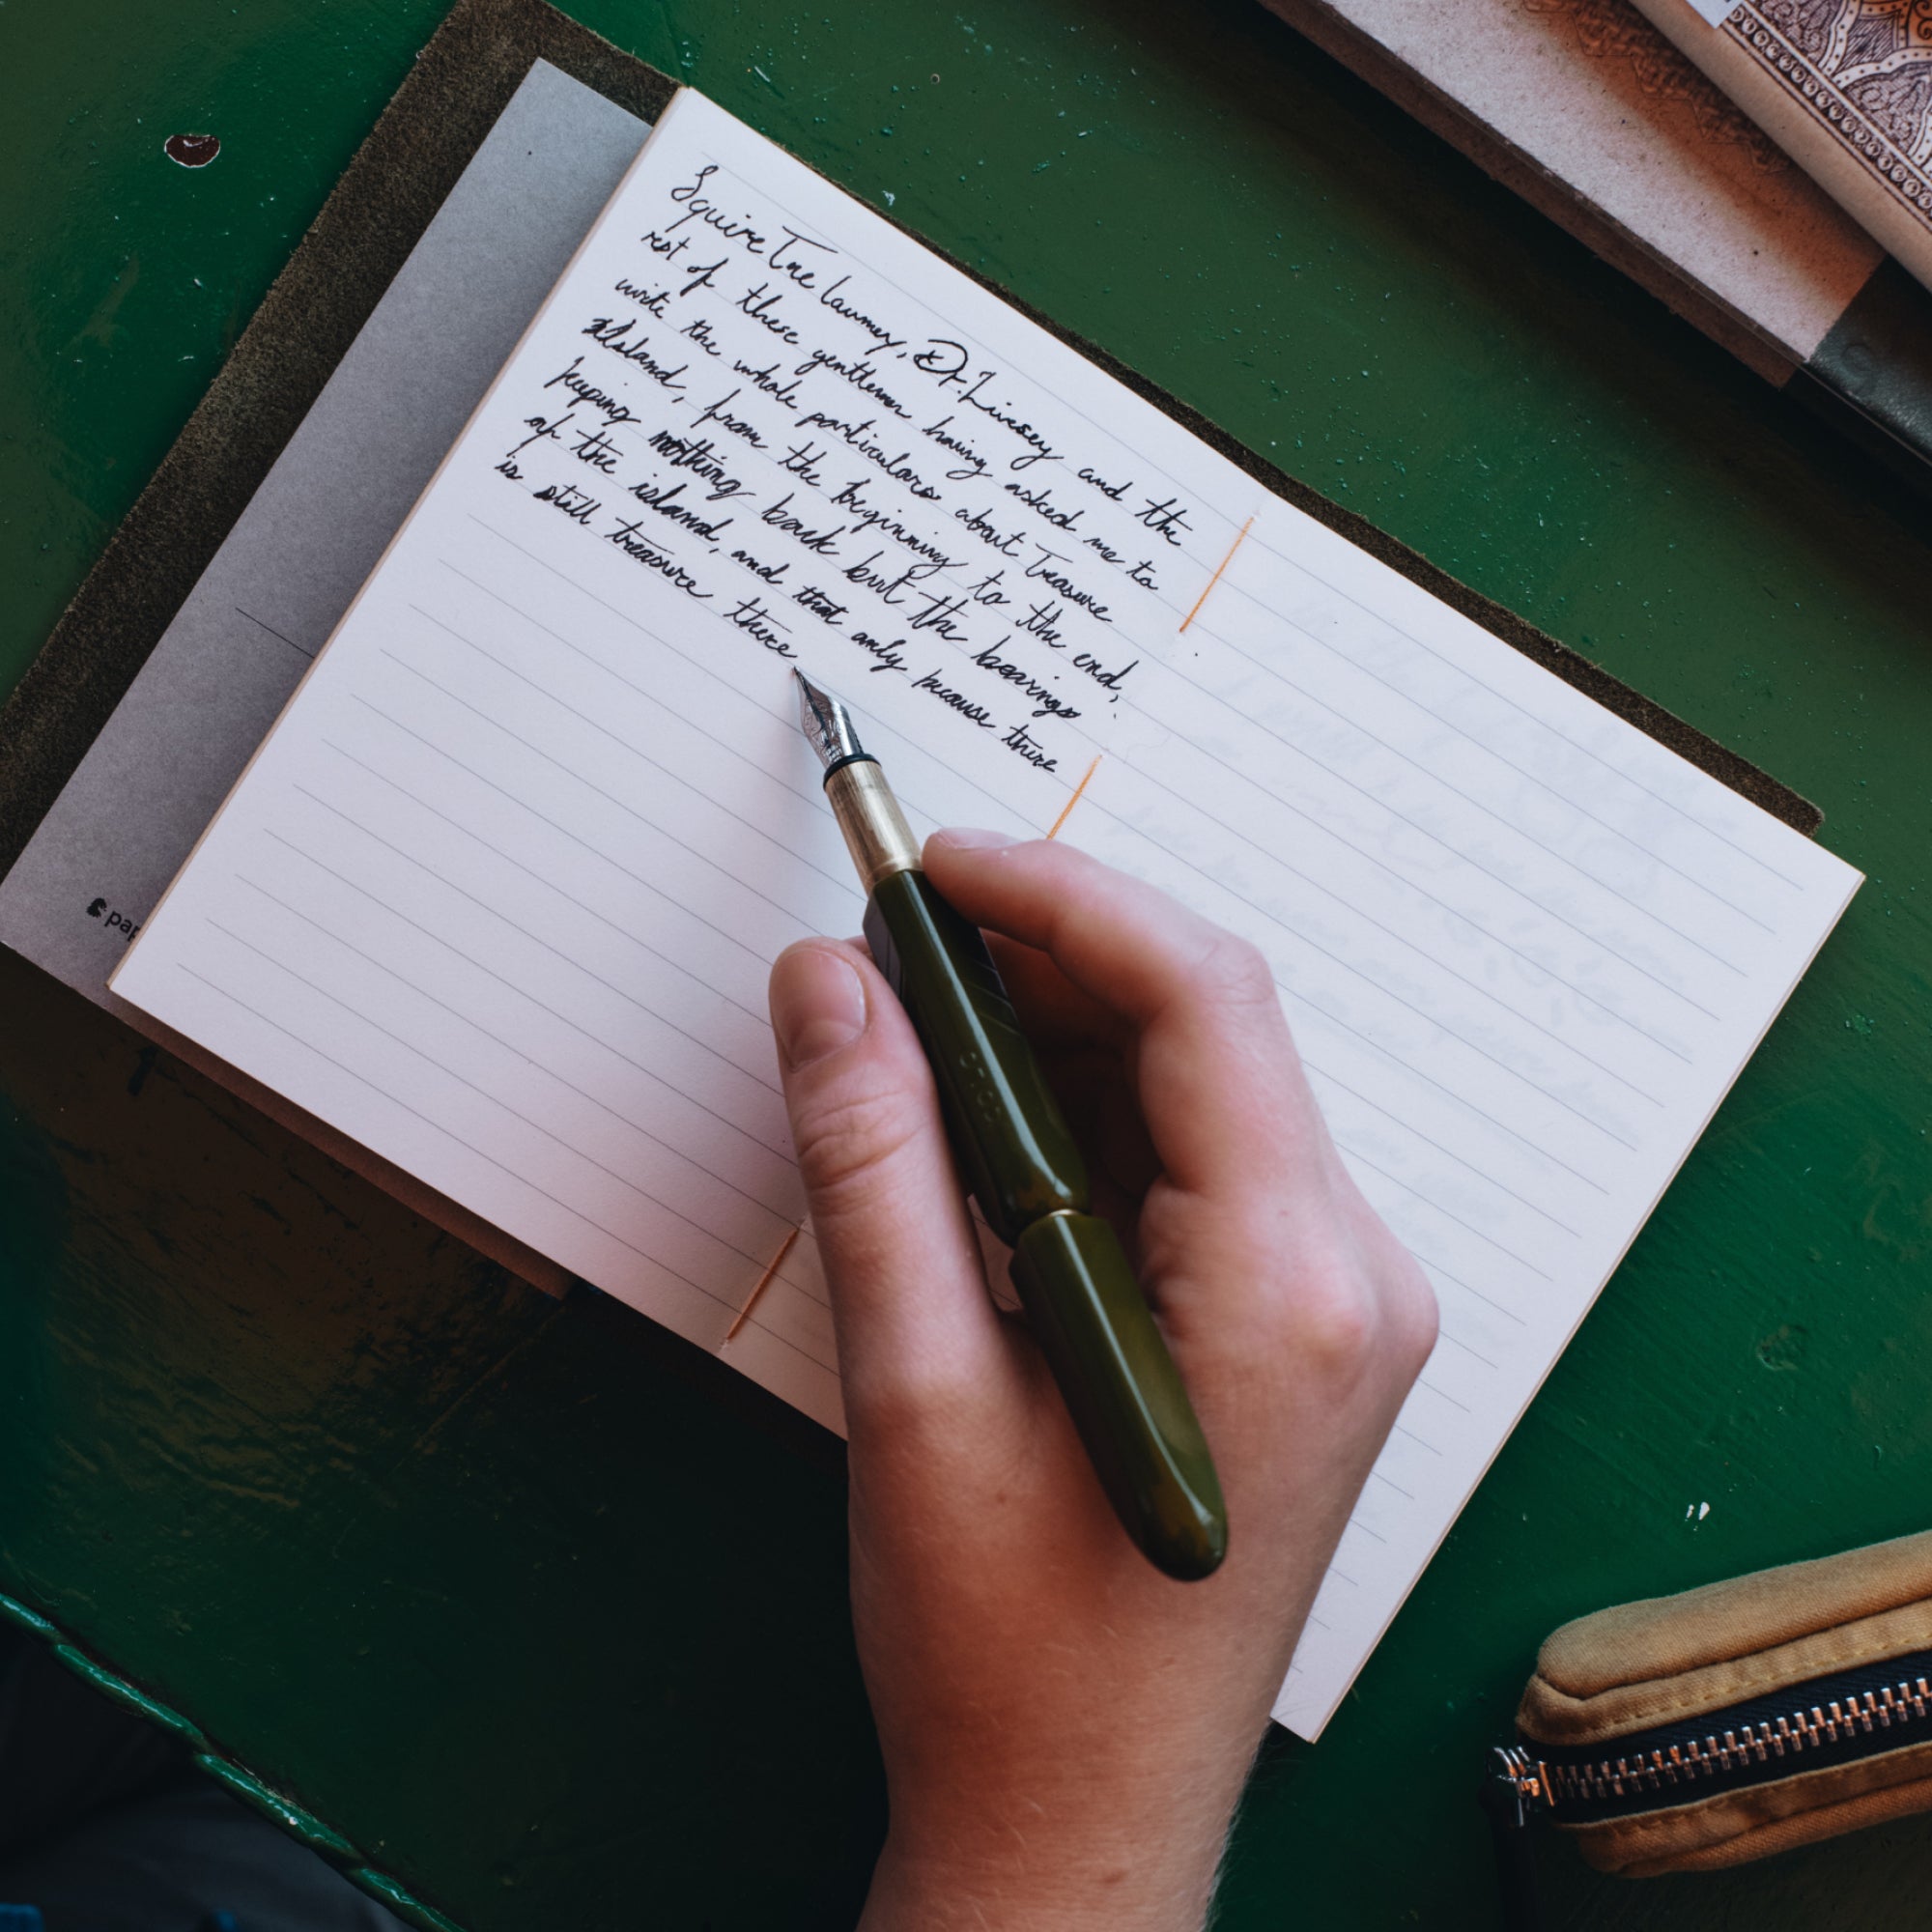 Squire Trelawney, Dr. Livesey and the
rest of these gentlemen having asked me to
write the whole particulars about Treasure
Island, from the beginning to the end,
keeping nothing back but the bearings
of the island, and that only because there
is still treasure there
pap